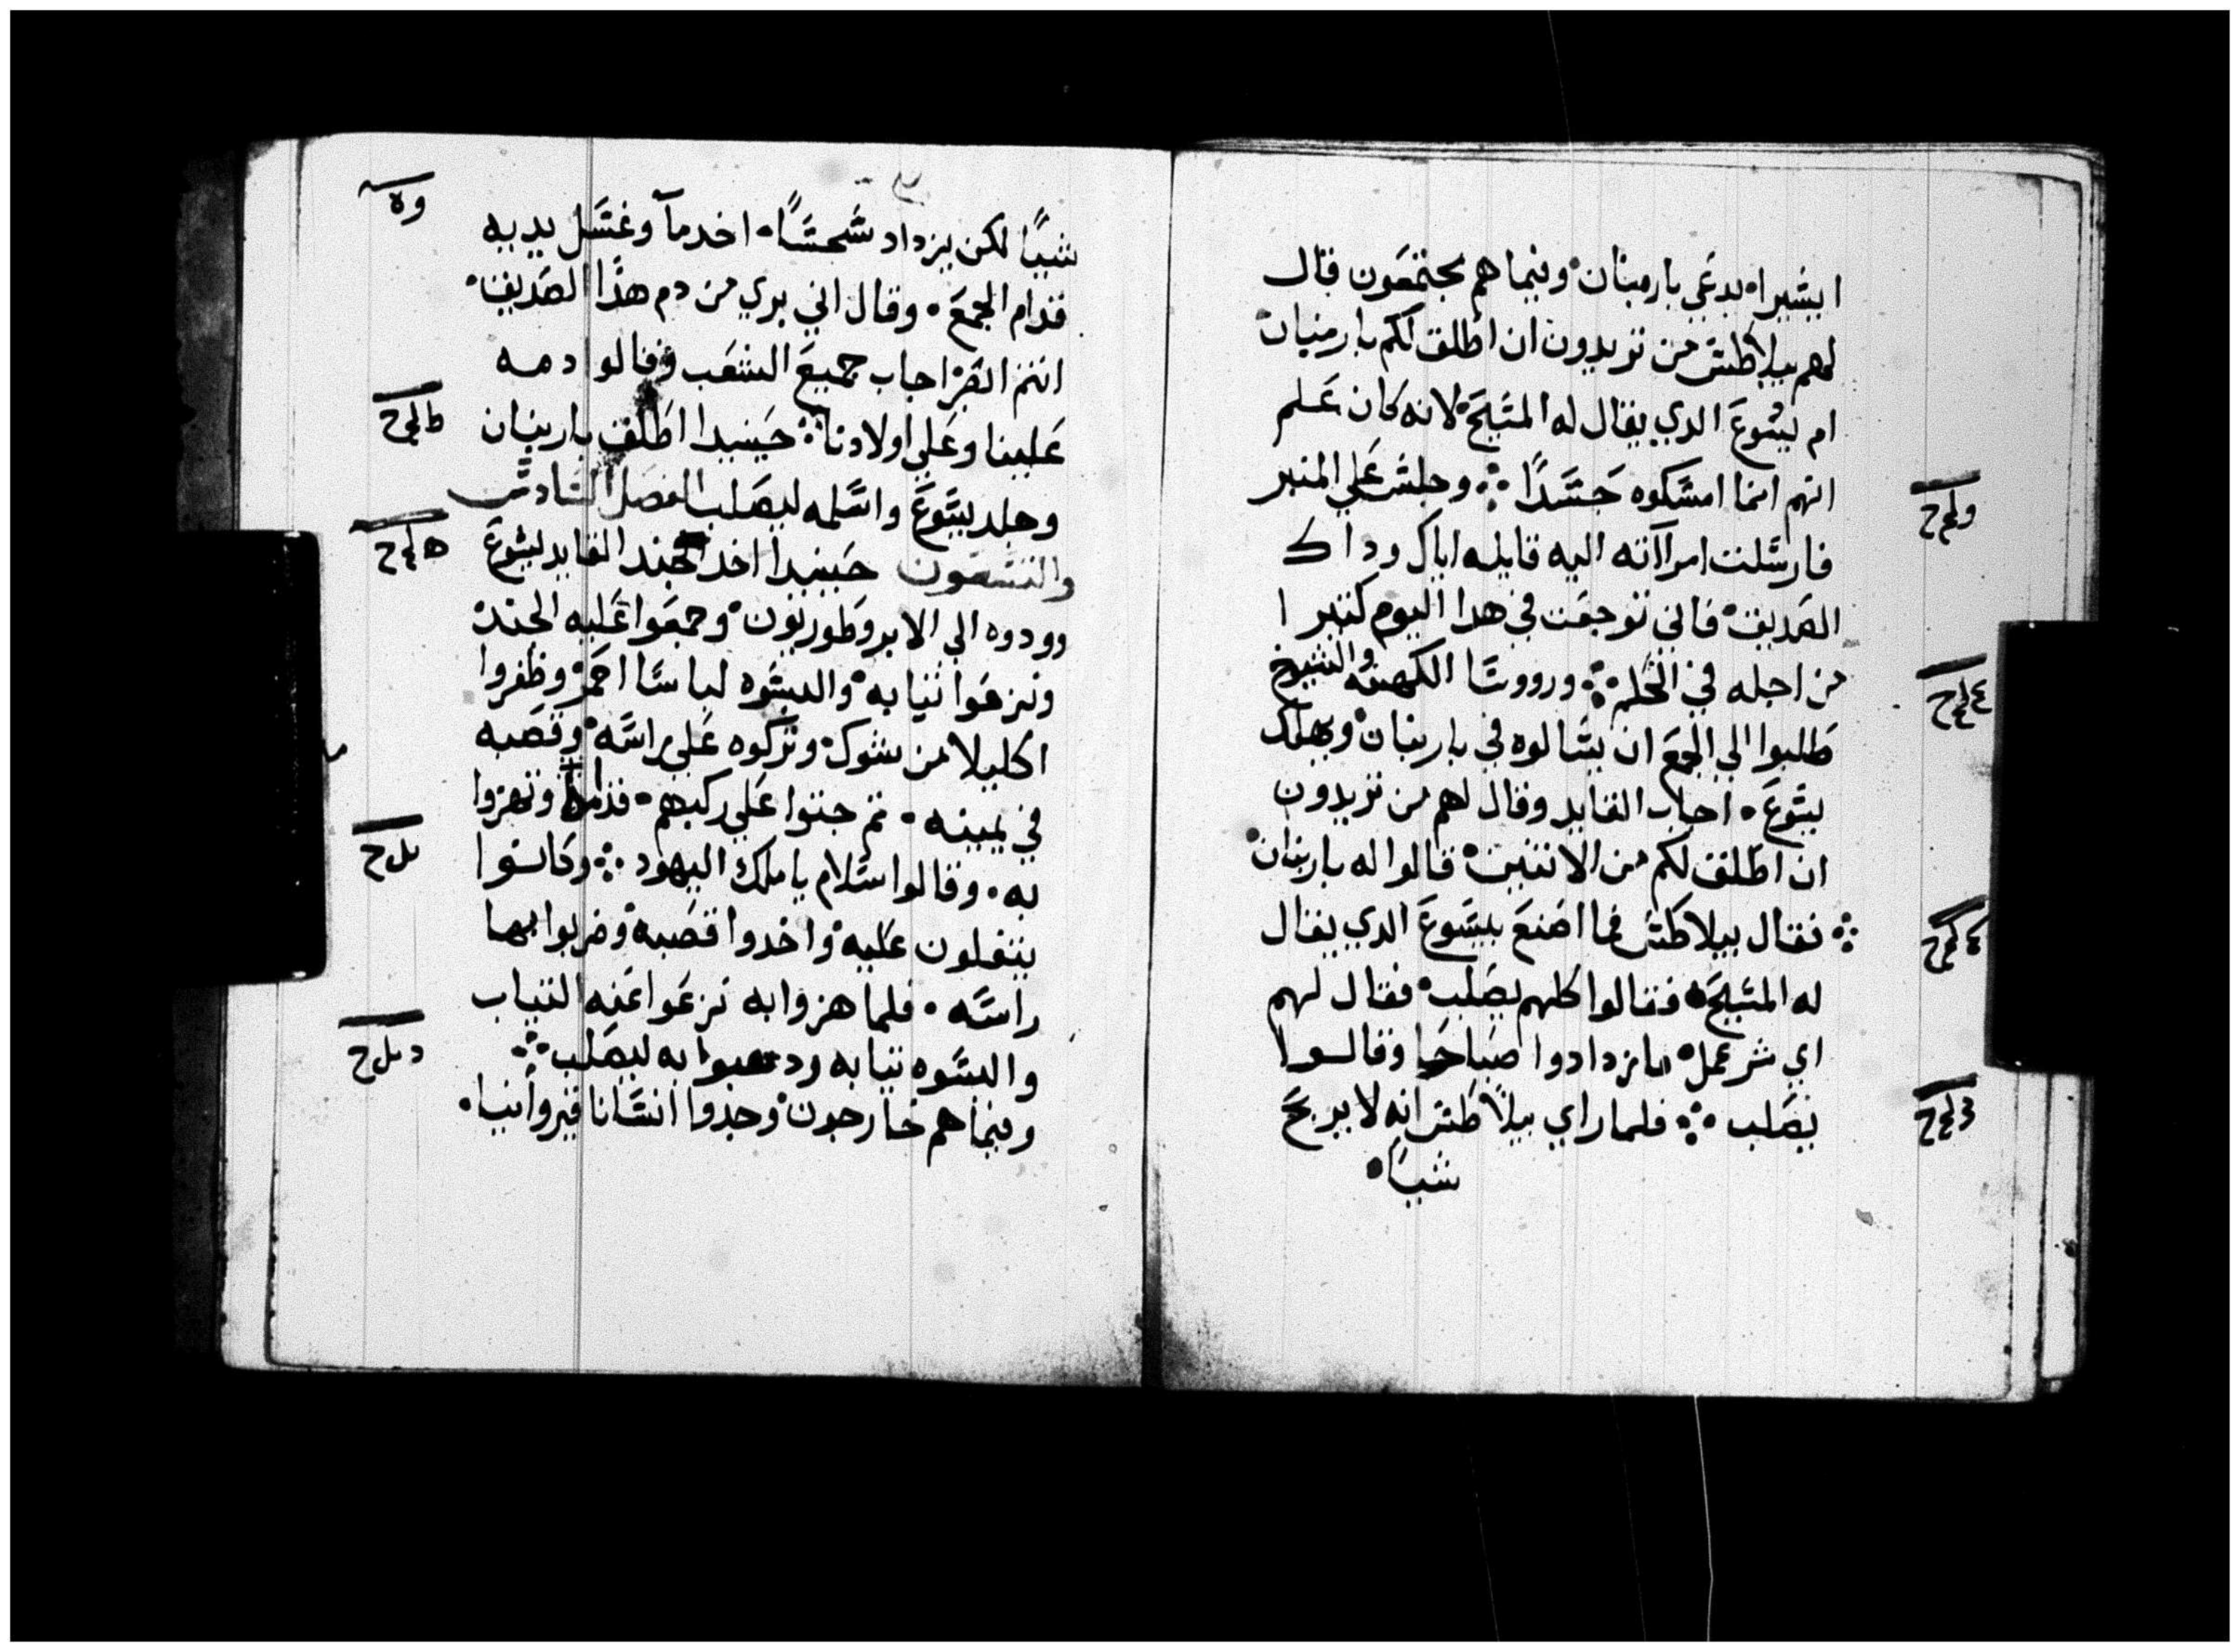 ابسيرا يدعي باربنان وفيما هم مجتمعون قال
لهم بيلاطس من تريدون ان اطلق لكم باربنان
ام ليسوع الدي يقال له المسيح لانه كان علم
انهم انما امسكوه حسدًا ܀ وجلس علي المنبر
فارسلت امراته اليه قايله اياك وداك
الصديق فاني توجعت في هدا اليوم كتيرا
من اجله في الحلم ܀ ورووسا الكهنه والشيوخ
طلبوا الي الجمع ان يسالوه في باربنان ويهلك
يسوع اجاب القايد وقال لهم من تريدون
ان اطلق لكم من الاتنين قالوا له باربنان
܀ فقال بيلاطس فما اصنع بيسوع الدي يقال
له المسيح فقالوا كلهم يصلب فقال لهم
اي شر عمل فازدادوا صياحا وقالوا
يصلب ܀ فلما راي بيلاطس انه لا يربح
شيا
شيًا لكن يزداد شحسًا اخد مآ وغسل يديه
قدام الجمع وقال اني بري من دم هدا الصديق
انتم ابصر اجاب جميع الشعب وقالوا دمه
علينا وعلي اولادنا ܀ حينيدا اطلق باربنان
وجلد يسوع واسلمه ليصلب الفصل السادس
والتسعون حينيدا اخد جند القايد ليسوع
وودوه الي الابروطوريون وجمعوا عليه الجند
ونزعوا تيابه والبسوه لباسا احمر وظفروا
اكليلا من شوك وتركوه علي راسه وقصبه
في يمينه تم جتوا علي ركبهم قدامه وتهزوا
به وقالوا سلام يا ملك اليهود ܀ وكانوا
يتفلون عليه واخدوا قصبه وضربوا بها
راسه فلما هزوا به نزعوا عنه التياب
والبسوه تيابه ودهبوا به ليصلب ܀
وفيما هم خارجون وجدوا انسانا قيروانيا